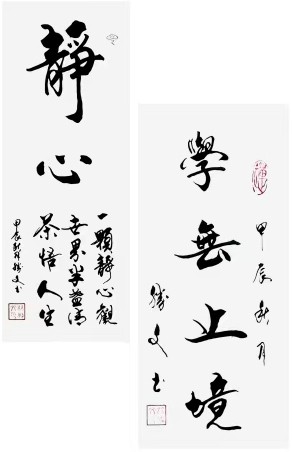 靜心
一顆靜心觀
世界半盞清
茶悟人生
甲辰
學無止境
甲辰秋月
勝文书